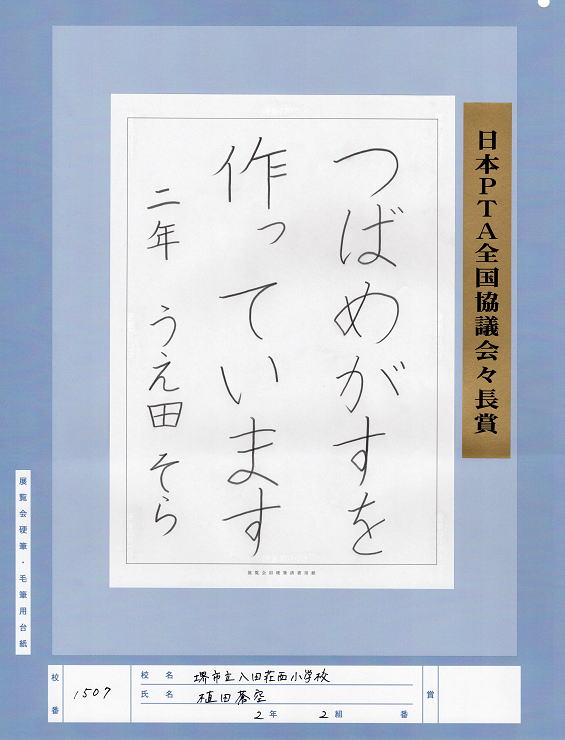 日本PTA全国協議会々長賞
つばめがすを
作っています
二年 うえ田そら
展覧会硬筆・毛筆用台紙
展覧会用硬筆清書用紙
校番 1507
校名 堺市立八田荘西小学校
氏名 植田蒼空
2年 2組 番
賞